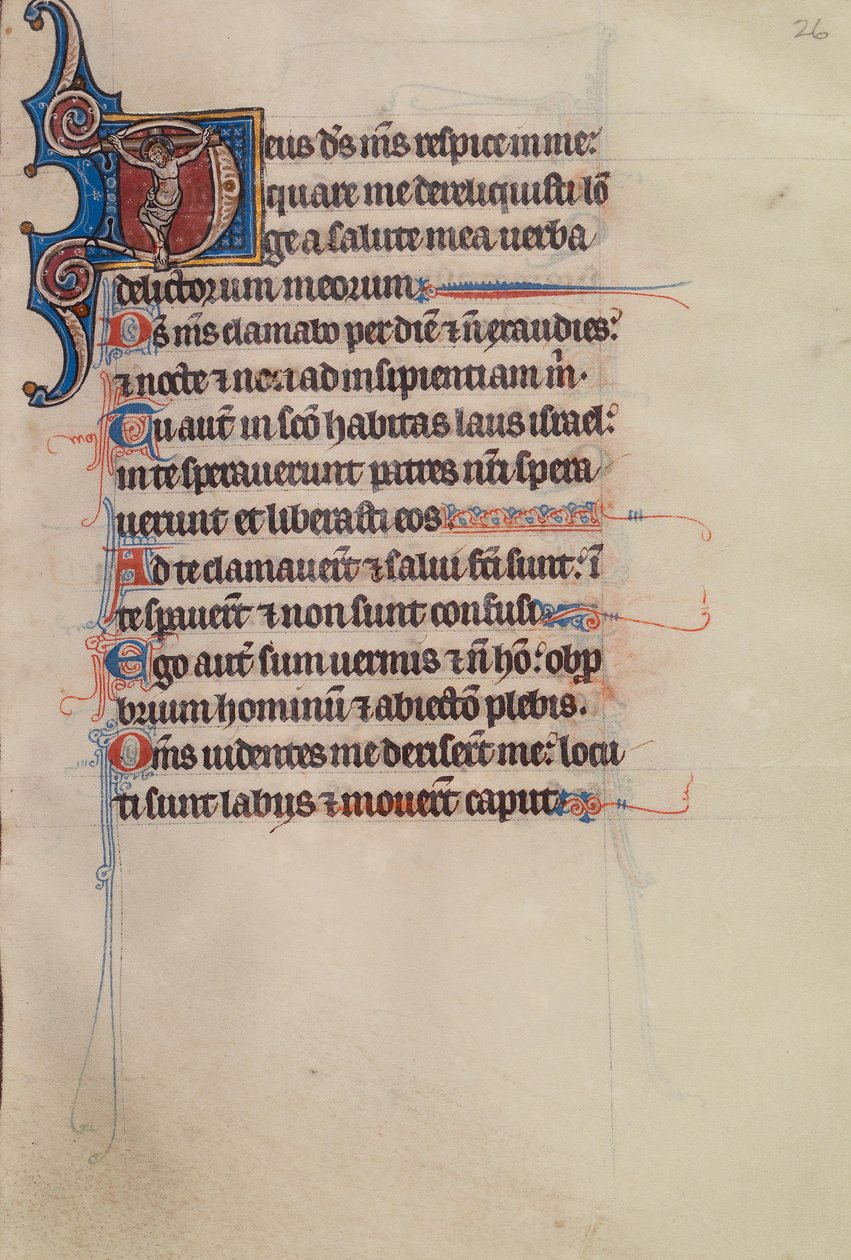 26
Deus d̄s m̄s respice in me:
quare me dereliquisti lō
ge a salute mea uerba
delictorum meorum
Ds̄ m̄s clamabo per diē ⁊ n̄ exaudies:
⁊ nocte ⁊ non ad insipientiam m̄.
Tu aut̄ in scō habitas laus israel:
in te sperauerunt patres nr̄i spera
uerunt et liberasti eos.
Ad te clamauer̄t ⁊ salui fc̄i sunt: ī
te sꝑauer̄t ⁊ non sunt confusi
Ego aut̄ sum uermis ⁊ n̄ hō: obꝓ
brium hominū ⁊ abiectō plebis.
Om̄s uidentes me deriser̄t me: locu
ti sunt labijs ⁊ mouer̄t caput